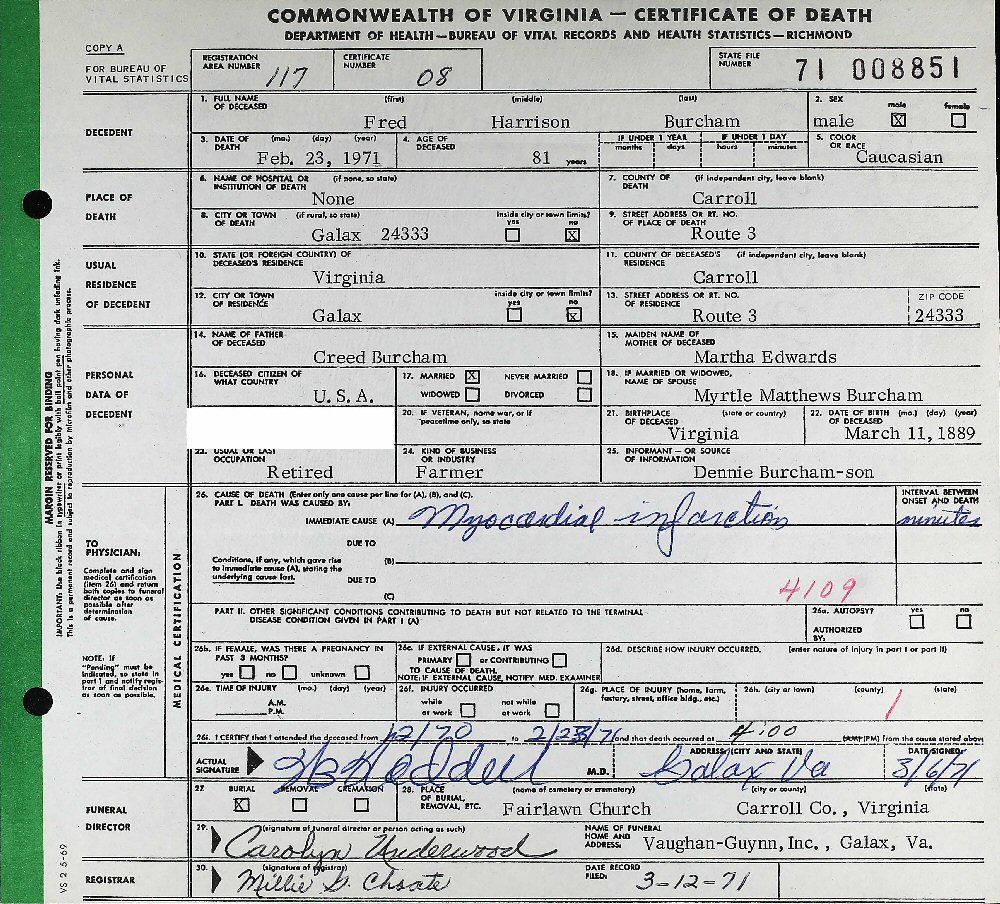 COMMONWEALTH OF VIRGINIA — CERTIFICATE OF DEATH
DEPARTMENT OF HEALTH—BUREAU OF VITAL RECORDS AND HEALTH STATISTICS—RICHMOND
COPY A
FOR BUREAU OF VITAL STATISTICS
REGISTRATION AREA NUMBER 117
CERTIFICATE NUMBER 08
STATE FILE NUMBER 71 008851
DECEDENT
1. FULL NAME OF DECEASED (first) (middle) (last)
Fred Harrison Burcham
2. SEX male female
male ☒ ☐
3. DATE OF DEATH (mo.) (day) (year)
Feb. 23, 1971
4. AGE OF DECEASED
81 years
IF UNDER 1 YEAR months days
IF UNDER 1 DAY hours minutes
5. COLOR OR RACE
Caucasian
PLACE OF DEATH
6. NAME OF HOSPITAL OR INSTITUTION OF DEATH (if none, so state)
None
7. COUNTY OF DEATH (if independent city, leave blank)
Carroll
8. CITY OR TOWN OF DEATH (if rural, so state)
Galax 24333
inside city or town limits? yes ☐ no ☒
9. STREET ADDRESS OR RT. NO. OF PLACE OF DEATH
Route 3
USUAL RESIDENCE OF DECEDENT
10. STATE (OR FOREIGN COUNTRY) OF DECEASED'S RESIDENCE
Virginia
11. COUNTY OF DECEASED'S RESIDENCE (if independent city, leave blank)
Carroll
12. CITY OR TOWN OF RESIDENCE
Galax
inside city or town limits? yes ☐ no ☒
13. STREET ADDRESS OR RT. NO. OF RESIDENCE
Route 3
ZIP CODE
24333
PERSONAL DATA OF DECEDENT
14. NAME OF FATHER OF DECEASED
Creed Burcham
15. MAIDEN NAME OF MOTHER OF DECEASED
Martha Edwards
16. DECEASED CITIZEN OF WHAT COUNTRY
U. S. A.
17. MARRIED ☒ NEVER MARRIED ☐
WIDOWED ☐ DIVORCED ☐
18. IF MARRIED OR WIDOWED, NAME OF SPOUSE
Myrtle Matthews Burcham
20. IF VETERAN, name war, or if peacetime only, so state
21. BIRTHPLACE OF DECEASED (state or country)
Virginia
22. DATE OF BIRTH OF DECEASED (mo.) (day) (year)
March 11, 1889
23. USUAL OR LAST OCCUPATION
Retired
24. KIND OF BUSINESS OR INDUSTRY
Farmer
25. INFORMANT — OR SOURCE OF INFORMATION
Dennie Burcham-son
MARGIN RESERVED FOR BINDING
IMPORTANT: Use black ribbon in typewriter or print legibly with ball point pen having dark unfading ink.
This is a permanent record and subject to reproduction by microfilm and other photographic process.
TO PHYSICIAN:
Complete and sign medical certification (item 26) and return both copies to funeral director as soon as possible after determination of cause.
NOTE: If "Pending" must be indicated, so state in part I and notify registrar of final decision as soon as possible.
MEDICAL CERTIFICATION
26. CAUSE OF DEATH (Enter only one cause per line for (A), (B), and (C).
PART I. DEATH WAS CAUSED BY:
INTERVAL BETWEEN ONSET AND DEATH
IMMEDIATE CAUSE (A) Myocardial infarction minutes
DUE TO
Conditions, if any, which gave rise to immediate cause (A), stating the underlying cause last.
(B)
DUE TO
4109
(C)
PART II. OTHER SIGNIFICANT CONDITIONS CONTRIBUTING TO DEATH BUT NOT RELATED TO THE TERMINAL DISEASE CONDITION GIVEN IN PART I (A)
26a. AUTOPSY? yes ☐ no ☐
AUTHORIZED BY:
26b. IF FEMALE, WAS THERE A PREGNANCY IN PAST 3 MONTHS?
yes ☐ no ☐ unknown ☐
26c. IF EXTERNAL CAUSE, IT WAS
PRIMARY ☐ or CONTRIBUTING ☐
TO CAUSE OF DEATH.
NOTE: IF EXTERNAL CAUSE, NOTIFY MED. EXAMINER
26d. DESCRIBE HOW INJURY OCCURRED. (enter nature of injury in part I or part II)
26e. TIME OF INJURY (mo.) (day) (year)
A.M.
P.M.
26f. INJURY OCCURRED
while at work ☐ not while at work ☐
26g. PLACE OF INJURY (home, farm, factory, street, office bldg., etc.)
26h. (city or town) (county) (state)
1
26i. I CERTIFY that I attended the deceased from 12/70 to 2/23/71 and that death occurred at 4:00 (PM) from the cause stated above
ACTUAL SIGNATURE M.D.
ADDRESS (CITY AND STATE) Galax Va
DATE SIGNED 3/6/71
FUNERAL DIRECTOR
27. BURIAL ☒ REMOVAL ☐ CREMATION ☐
28. PLACE OF BURIAL, REMOVAL, ETC. (name of cemetery or crematory) (city or county) (state)
Fairlawn Church Carroll Co., Virginia
29. (signature of funeral director or person acting as such)
Carolyn Underwood
NAME OF FUNERAL HOME AND ADDRESS: Vaughan-Guynn, Inc., Galax, Va.
REGISTRAR
30. (signature of registrar)
Millie G. Choate
DATE RECORD FILED: 3-12-71
VS 2 5-69